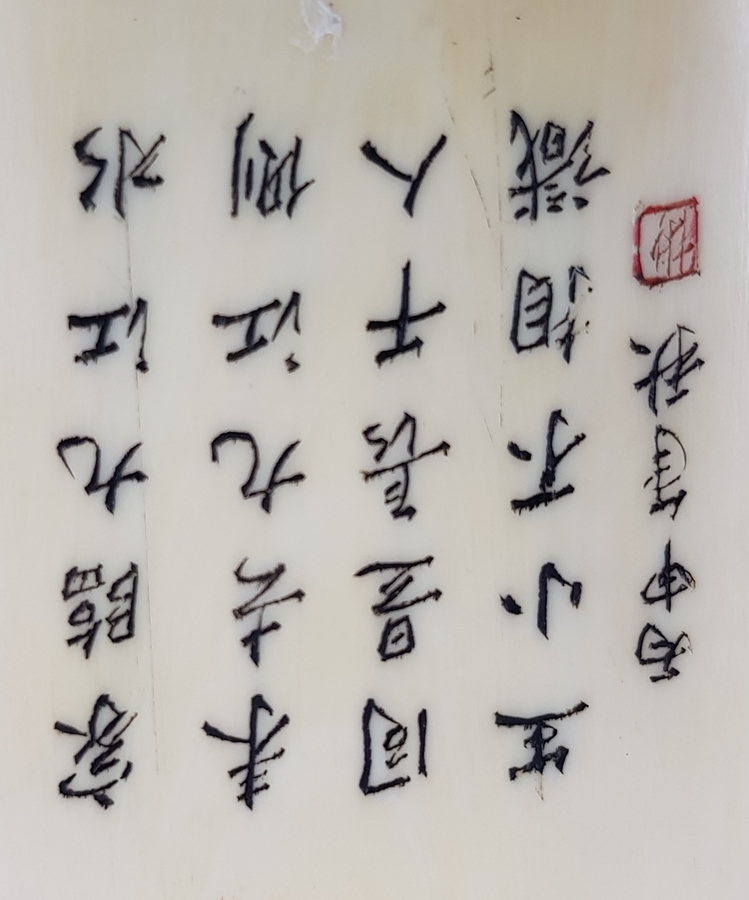 家臨九江水
来去九江側
同是長干人
生小不相識
丙申年秋